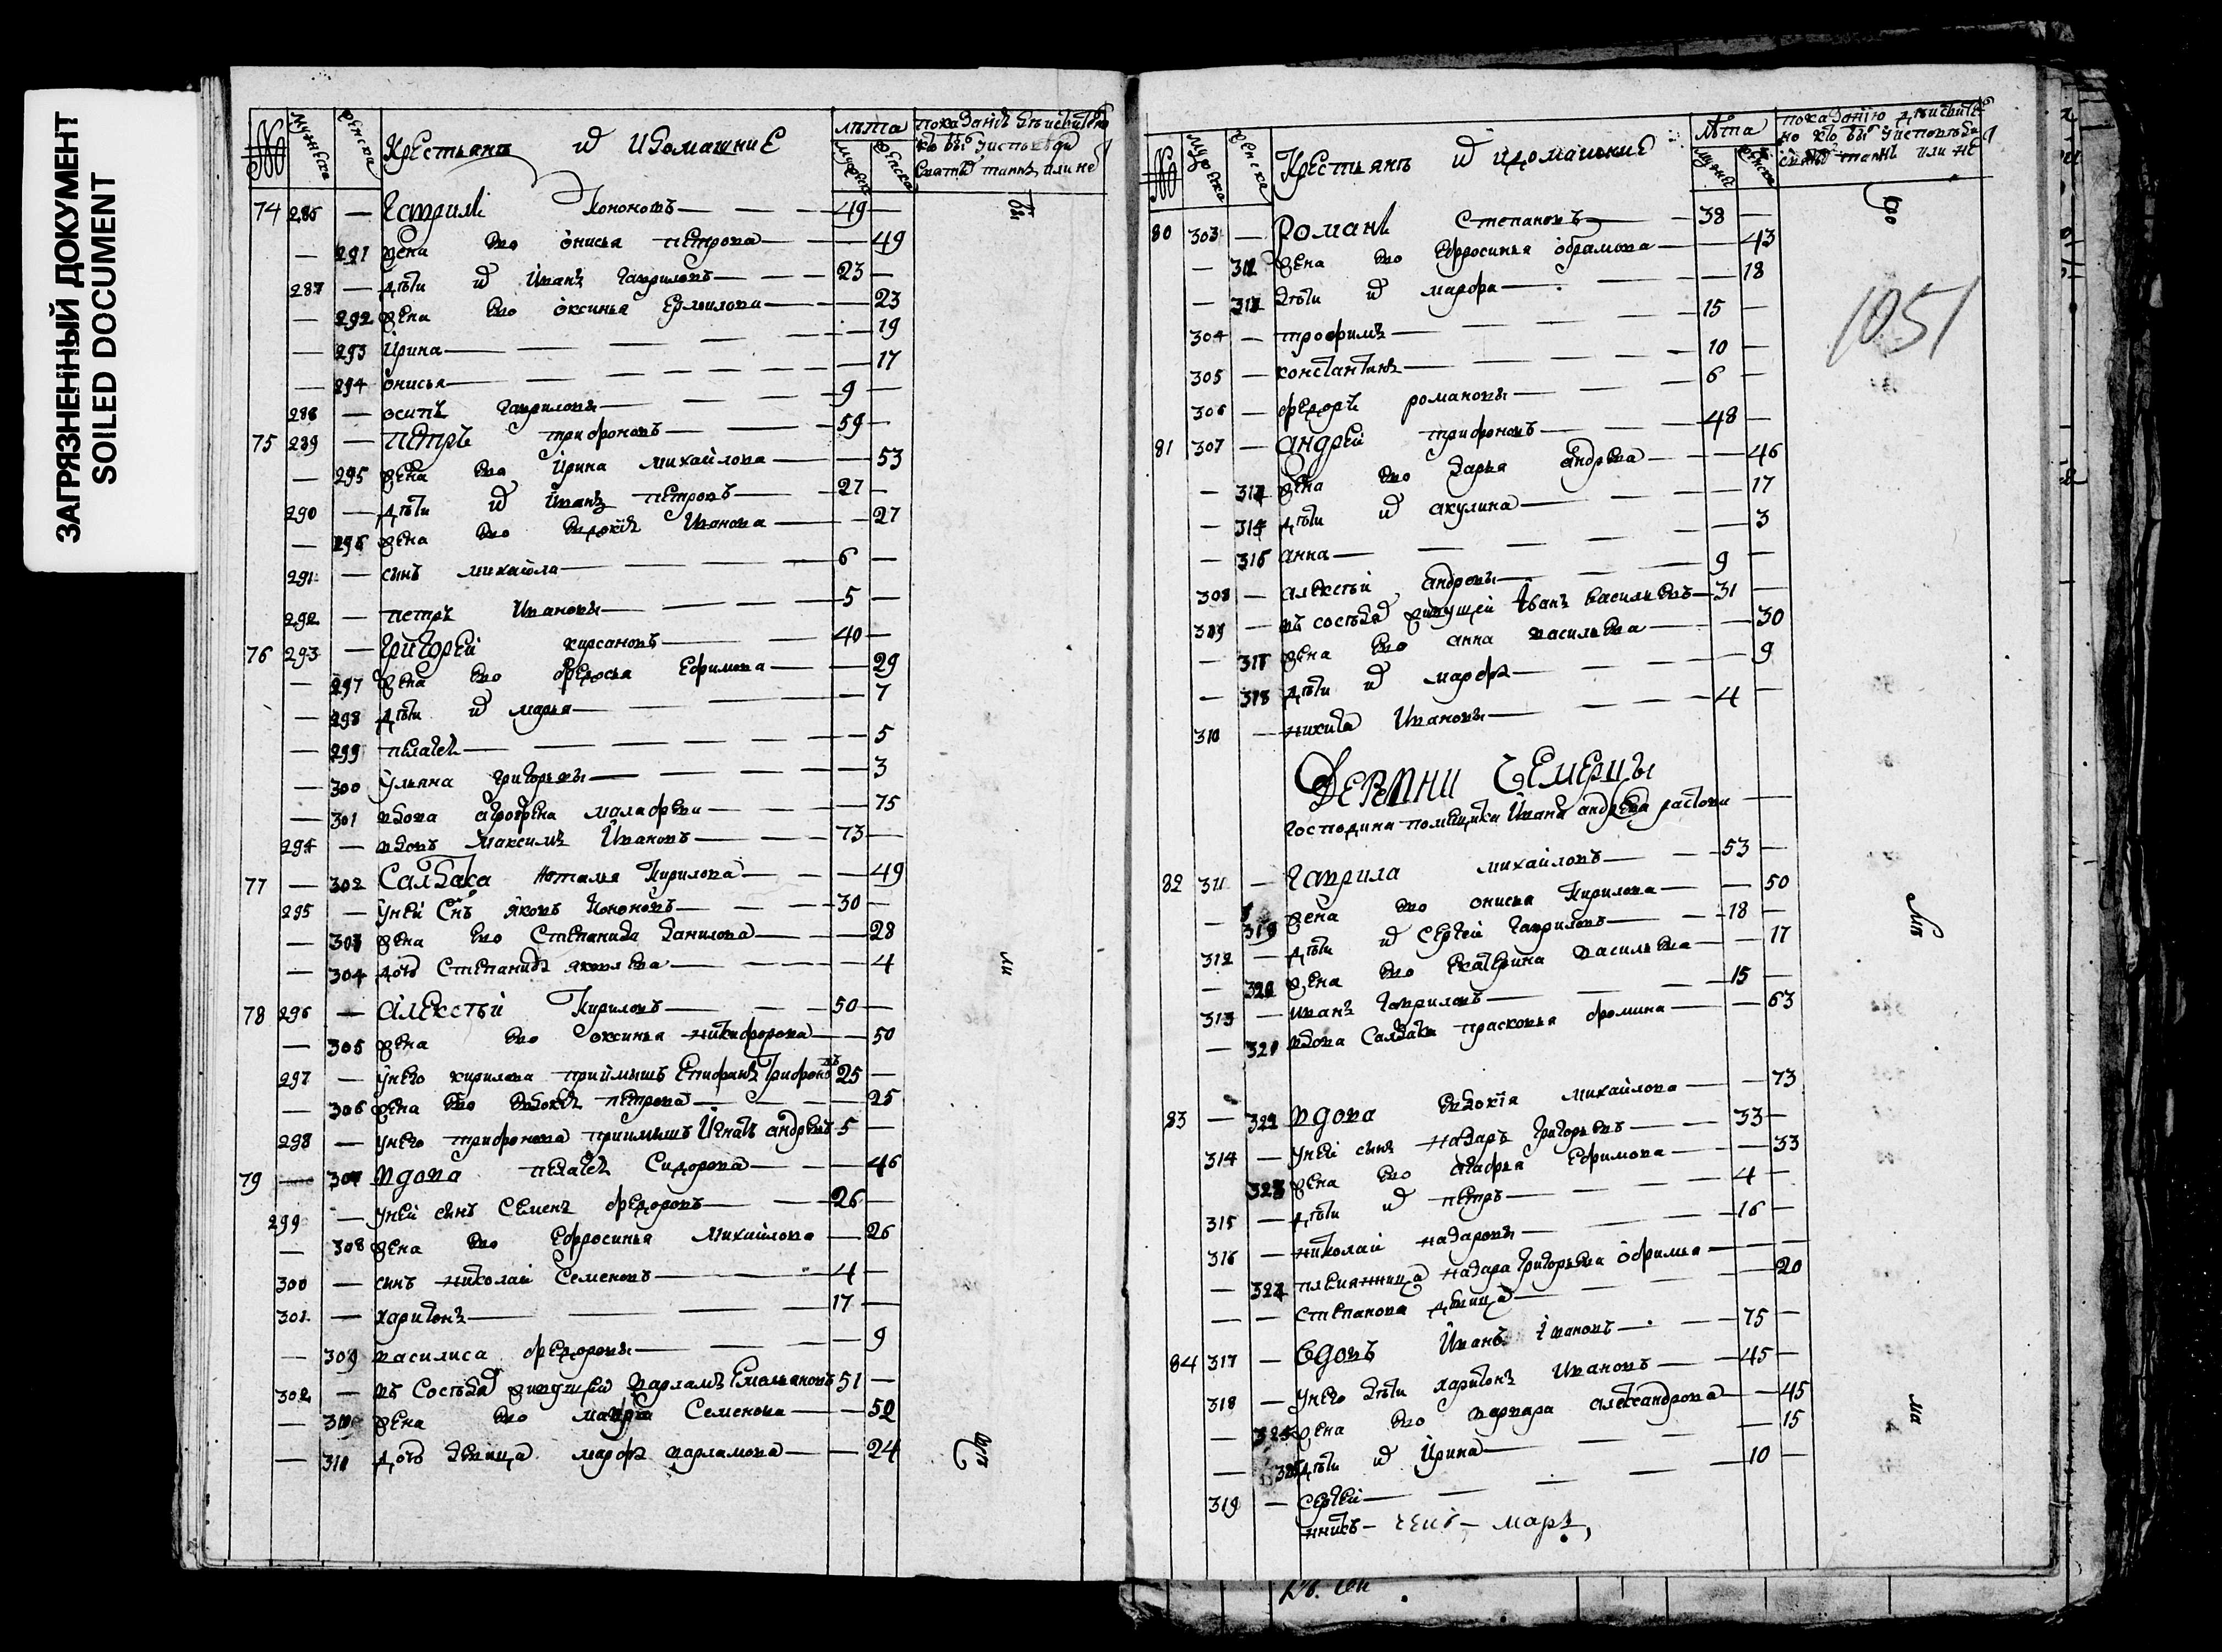 ЗАГРЯЗНЕННЫЙ ДОКУМЕНТ
SOILED DOCUMENT
№ мужеска женска Крестьянъ и домашние лѣта мужска женска
74 286 — Гаврилъ Кононовъ — 49 —
— 291 жена ево онисья петрова — 49
287 — дѣти их Иванъ Гавриловъ — 23 —
— 292 жена ево оксинья Ермилова — 23
— 293 Ирина — 19
— 294 онисья — 17
288 — осипъ Гавриловы — 9 —
75 289 — петръ трифоновъ — 59 —
— 295 жена ево Ирина михайлова — 53
290 — дѣти их Иванъ петровъ — 27 —
— 296 жена ево Евдокія Иванова — 27
291 — сынъ михайла — 6 —
292 — петръ Ивановы — 5 —
76 293 — Григорей кирсановъ — 40 —
— 297 жена ево федосья Ефимова — 29
— 298 дѣти их марья — 7
— 299 пелагея — 5
— 300 Ульяна григорьевы — 3
— 301 вдова агрофена малафеева — 75
294 — вдовъ Максимъ Ивановъ — 73 —
77 — 302 Салдака Наталья Кирилова — 49
295 — у ней Снъ яковъ Кононовъ — 30 —
— 303 жена ево Степанида данилова — 28
— 304 дочь Степанида яковлева — 4
78 296 — Алексѣй Кириловъ — 50 —
— 305 жена ево оксинья никифорова — 50
297 — у него кирилова приймышъ Епифанъ Трифоновъ 25 —
— 306 жена ево евдокея петрова — 25
298 — у него трифонова приимышъ Игнатъ андреевъ 5 —
79 — 307 вдова пелагея Сидорова — 46
299 — у ней сынъ Семенъ федоровъ — 26 —
— 308 жена ево Ефросинья Михайлова — 26
300 — сынъ николай Семеновъ — 4 —
301 — харитонъ — 17 —
— 309 василиса федоровы — 9
302 — въ Сосѣдах живущей варламъ Емельяновъ 51 —
— 310 жена ево мавра Семенова — 52
— 311 дочь девица марфа варламова — 24
№ мужеска женска Крестьянъ и домашние лѣта мужска женска
1051
80 303 — Романъ Степановъ — 38 —
— 312 жена ево Ефросинья обрамова — 43
— 313 дѣти их марфа — 18
304 — трофимъ — 15 —
305 — константинъ — 10 —
306 — федоръ романовы — 6 —
81 307 — андрей трифоновъ — 48 —
— 314 жена ево дарья андреева — 46
— 315 дѣти их акулина — 17
— 316 анна — 3
308 — алексѣй андреевы — 9 —
309 — въ сосѣдах живущей Иванъ васильевъ — 31 —
— 317 жена ево анна васильева — 30
— 318 дѣти их марфа — 9
310 — никита Ивановы — 4 —
Деревни Чемерцы
господина помещика Ивана андреева
82 311 — Гаврила михайловъ — 53 —
— 319 жена ево онисья Кирилова — 50
312 — дѣти их Сергей Гавриловъ — 18 —
— 320 жена ево Екатерина васильева — 17
313 — иванъ Гавриловъ — 15 —
— 321 вдова Салдака прасковья фомина — 63
83 — 322 вдова Евдокія михайлова — 73
314 — у ней сынъ назаръ григорьевъ — 33 —
323 жена ево агафья Ефимова — 33
315 — дѣти их петръ — 4 —
316 — николай назаровы — 16 —
— 324 племянница назара григорьева офимья
— — степанова девица — 20
84 317 — вдовъ Иванъ Ивановъ — 75 —
318 — у него дѣти харитонъ Ивановъ — 45 —
— 325 жена ево варвара александрова — 45
— 326 дѣти их Ирина — 15
319 — Сергей — 10 —